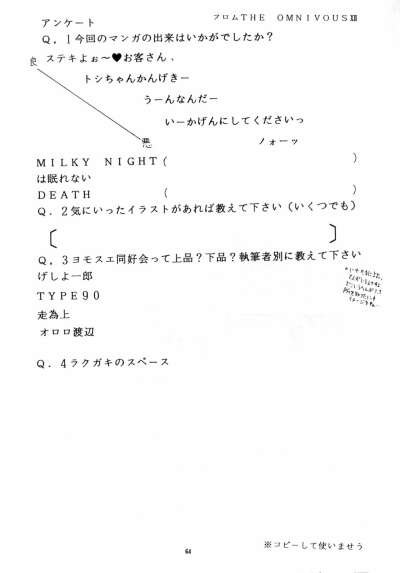 アンケート
フロムTHE OMNIVOUSⅫ
Q．1今回のマンガの出来はいかがでしたか？
良
ステキよぉ～♥お客さん、
トシちゃんかんげきー
うーんなんだー
いーかげんにしてくださいっ
悪
ノォーッ
MILKY NIGHT（　　　）
は眠れない
DEATH　　　（　　　）
Q．2気にいったイラストがあれば教えて下さい（いくつでも）
〔　　　〕
Q．3ヨモスエ同好会って上品？下品？執筆者別に教えて下さい
げしよ一郎
TYPE90
走為上
オロロ渡辺
Q．4ラクガキのスペース
※コピーして使いませう
64